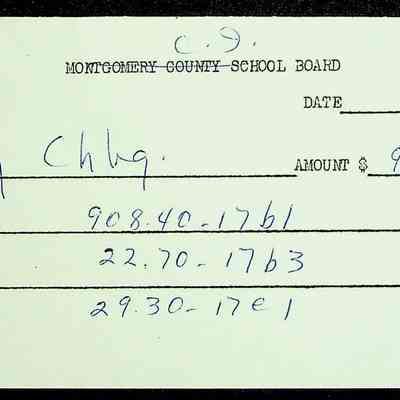 C. I.
MONTGOMERY COUNTY SCHOOL BOARD
DATE
Chbg.
AMOUNT $ 9
908.40-17b1
22.70-17b3
29.30-17e1